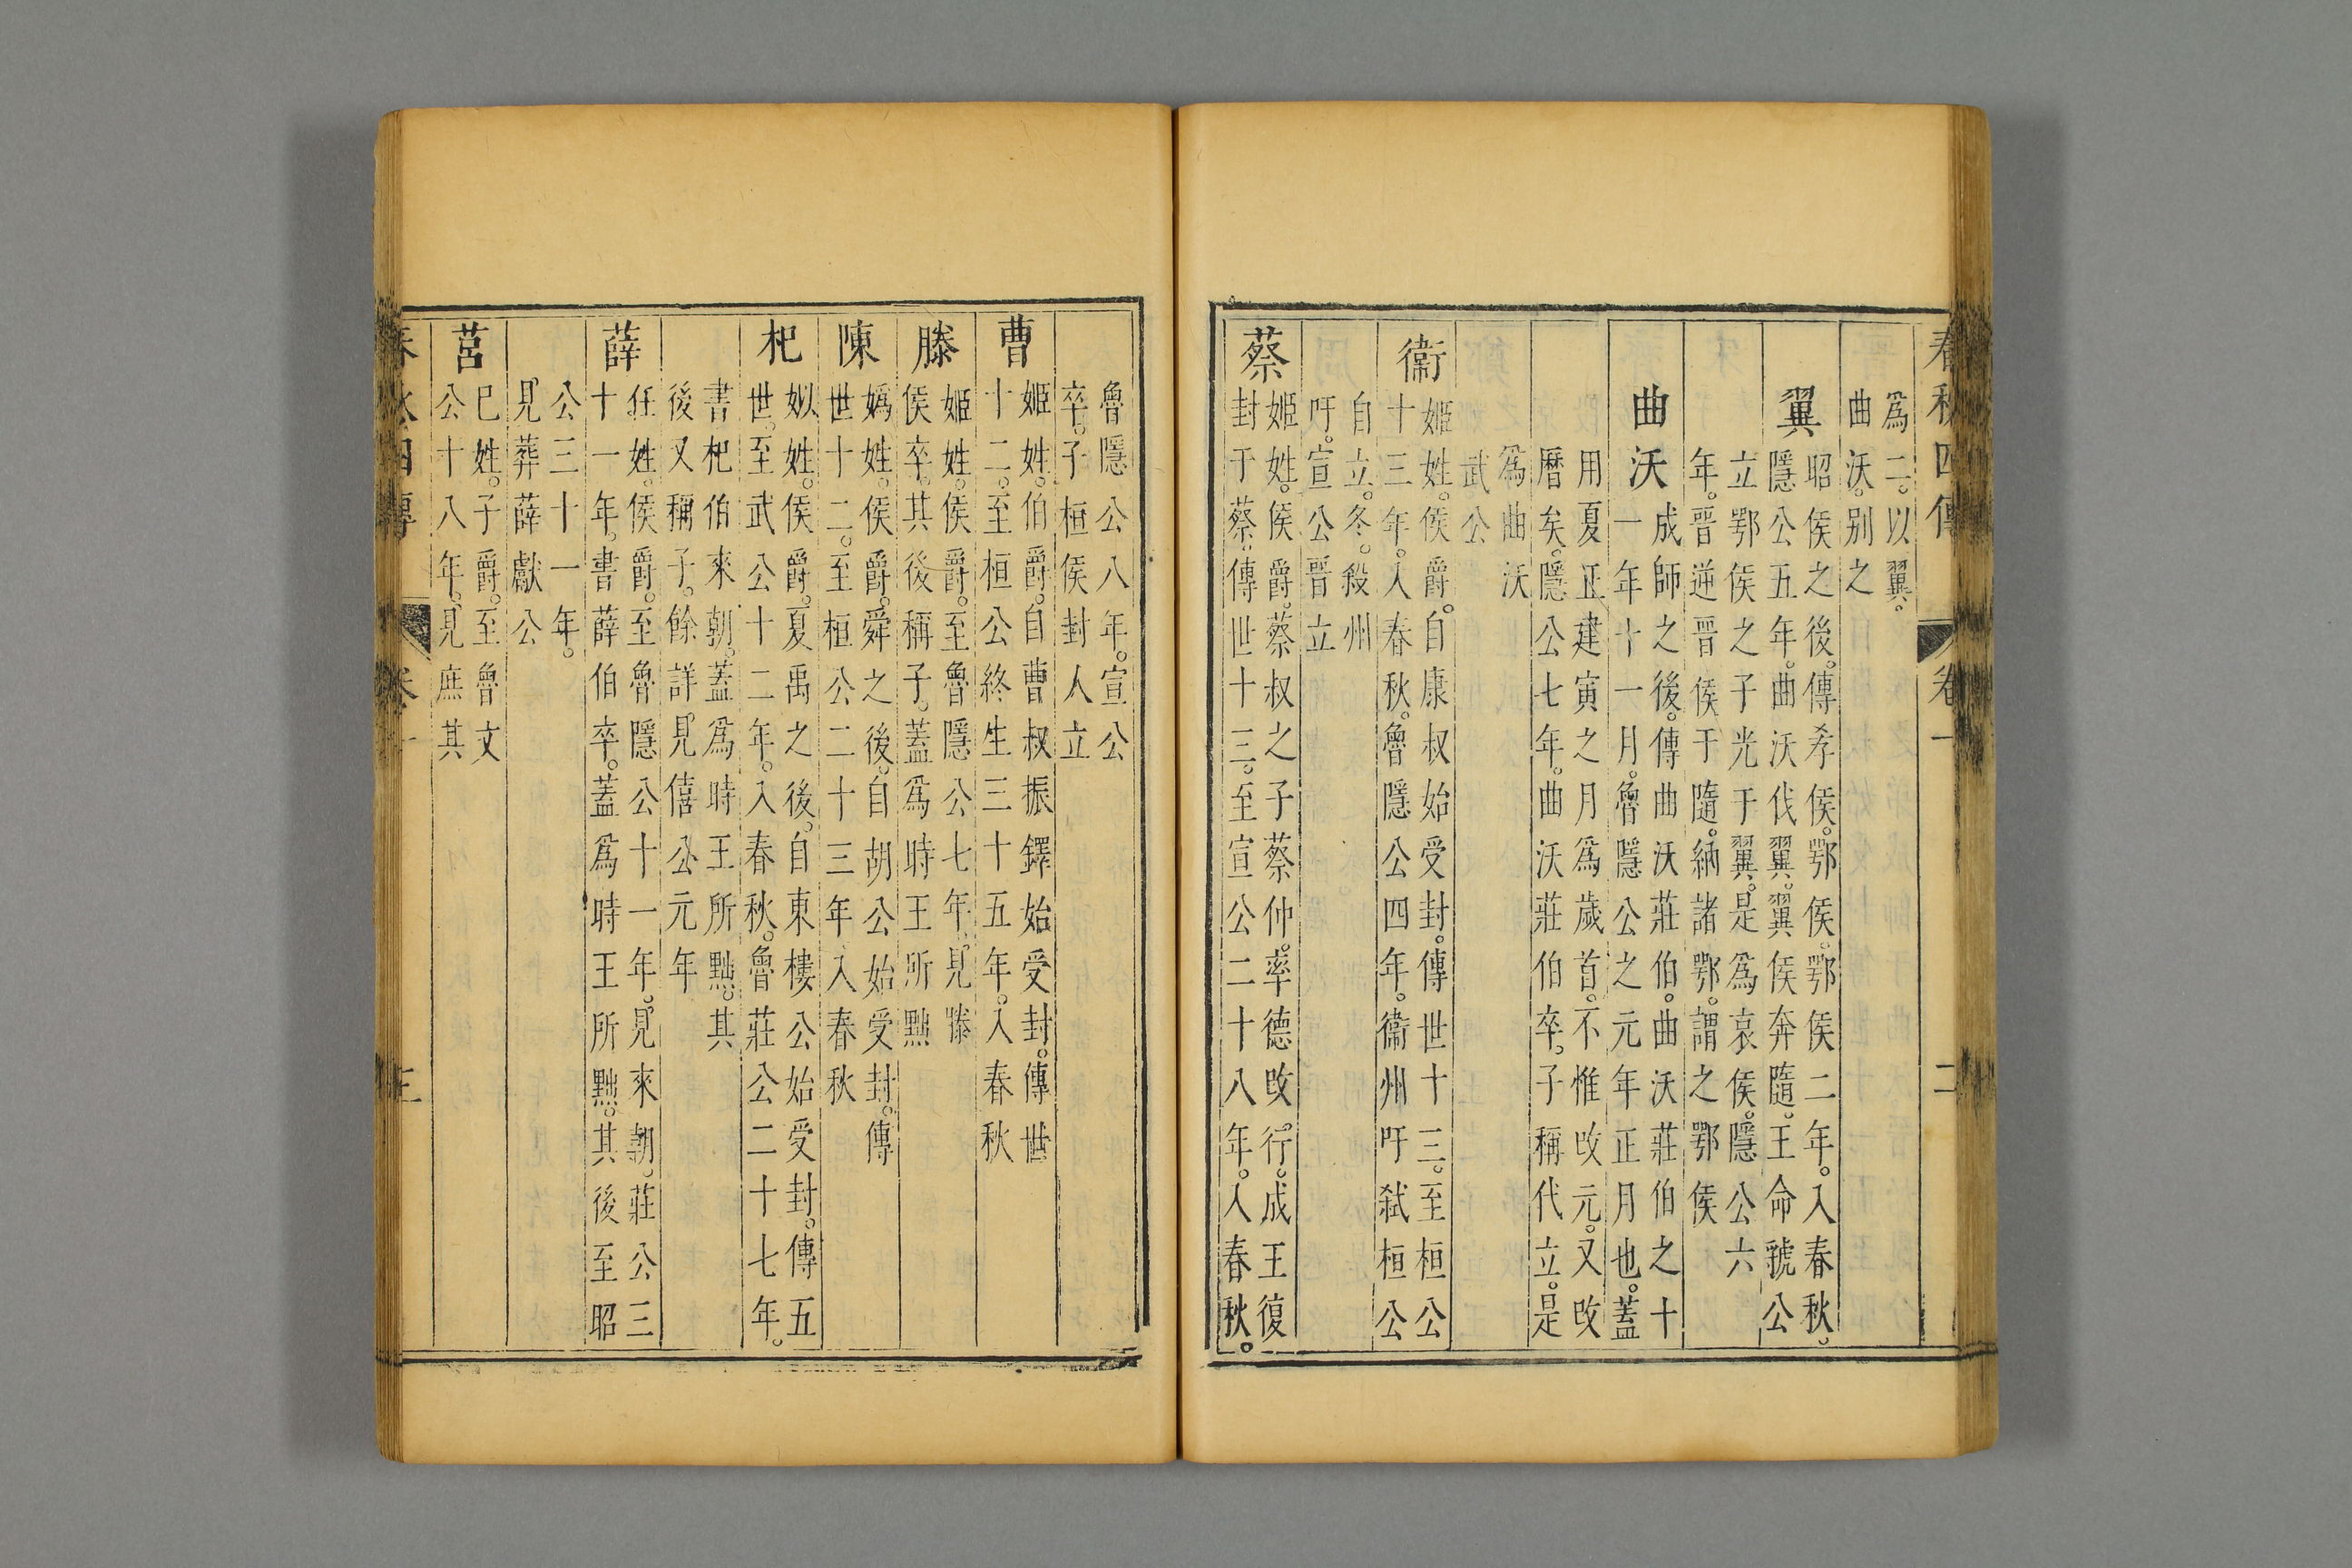 春秋四傳 卷一 二
爲二。以翼。
曲沃。別之
翼
昭侯之後。傳孝侯。鄂侯。鄂侯二年。入春秋。
隱公五年。曲沃伐翼。翼侯奔隨。王命虢公
立鄂侯之子光于翼。是爲哀侯。隱公六
年。晋逆晋侯于隨。納諸鄂。謂之鄂侯
曲沃
成師之後。傳曲沃莊伯。曲沃莊伯之十
一年十一月。魯隱公之元年正月也。蓋
用夏正建寅之月爲歲首。不惟改元。又改
曆矣。隱公七年。曲沃莊伯卒。子稱代立。是
爲曲沃
武公
衞
姬姓。侯爵。自康叔始受封。傳世十三。至桓公
十三年。入春秋。魯隱公四年。衞州吁弑桓公
自立。冬。殺州
吁。宣公晋立
蔡
姬姓。侯爵。蔡叔之子蔡仲。率德改行。成王復
封于蔡。傳世十三。至宣公二十八年。入春秋。
魯隱公八年。宣公
卒。子桓侯封人立
曹
姬姓。伯爵。自曹叔振鐸始受封。傳世
十二。至桓公終生三十五年。入春秋
滕
姬姓。侯爵。至魯隱公七年。見滕
侯卒。其後稱子。蓋爲時王所黜
陳
嬀姓。侯爵。舜之後。自胡公始受封。傳
世十二。至桓公二十三年入春秋
杞
姒姓。侯爵。夏禹之後。自東樓公始受封。傳五
世。至武公十二年。入春秋。魯莊公二十七年。
書杞伯來朝。蓋爲時王所黜。其
後又稱子。餘詳見僖公元年
薛
任姓。侯爵。至魯隱公十一年。見來朝。莊公三
十一年。書薛伯卒。蓋爲時王所黜。其後至昭
公三十一年。
見葬薛獻公
莒
巳姓。子爵。至魯文
公十八年。見庶其
春秋四傳 卷一 三